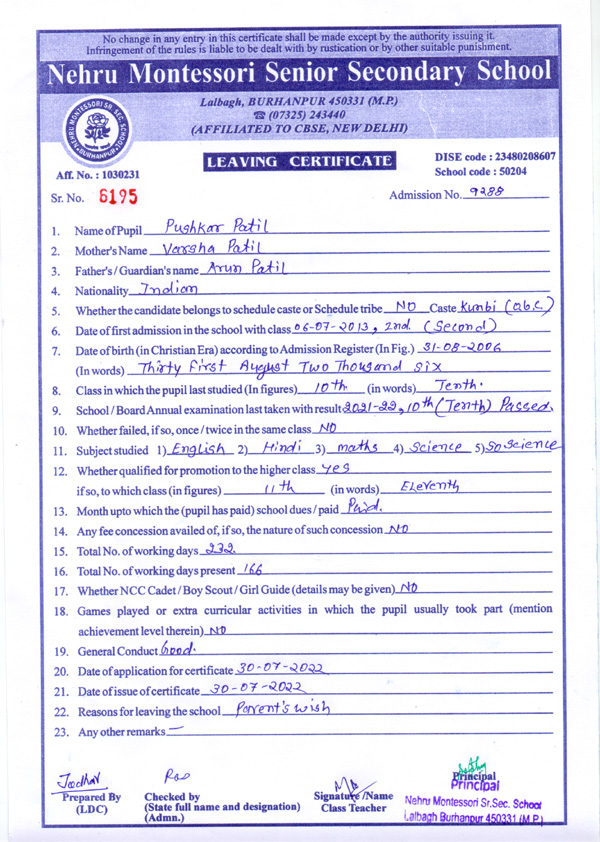 No change in any entry in this certificate shall be made except by the authority issuing it.
Infringement of the rules is liable to be dealt with by rustication or by other suitable punishment.
Nehru Montessori Senior Secondary School
Lalbagh, BURHANPUR 450331 (M.P.)
☎ (07325) 243440
(AFFILIATED TO CBSE, NEW DELHI)
NEHRU MONTESSORI SR. SEC. SCHOOL
BURHANPUR
LEAVING CERTIFICATE
DISE code : 23480208607
School code : 50204
Aff. No. : 1030231
Sr. No. 6195
Admission No. 9288
1. Name of Pupil Pushkar Patil
2. Mother's Name Varsha Patil
3. Father's / Guardian's name Arun Patil
4. Nationality Indian
5. Whether the candidate belongs to schedule caste or Schedule tribe NO Caste Kunbi (o.b.c.)
6. Date of first admission in the school with class 06-07-2013, 2nd (Second)
7. Date of birth (in Christian Era) according to Admission Register (In Fig.) 31-08-2006
(In words) Thirty First August Two Thousand Six
8. Class in which the pupil last studied (In figures) 10th (in words) Tenth.
9. School / Board Annual examination last taken with result 2021-22, 10th (Tenth) Passed.
10. Whether failed, if so, once / twice in the same class NO
11. Subject studied 1) English 2) Hindi 3) maths 4) Science 5) So Science
12. Whether qualified for promotion to the higher class yes
if so, to which class (in figures) 11th (in words) Eleventh
13. Month upto which the (pupil has paid) school dues / paid Paid.
14. Any fee concession availed of, if so, the nature of such concession NO
15. Total No. of working days 232
16. Total No. of working days present 166
17. Whether NCC Cadet / Boy Scout / Girl Guide (details may be given) NO
18. Games played or extra curricular activities in which the pupil usually took part (mention
achievement level therein) NO
19. General Conduct Good.
20. Date of application for certificate 30-07-2022
21. Date of issue of certificate 30-07-2022
22. Reasons for leaving the school Parent's wish
23. Any other remarks —
Prepared By
(LDC)
Checked by
(State full name and designation)
(Admn.)
Signature /Name
Class Teacher
Principal
Principal
Nehru Montessori Sr.Sec. School
Lalbagh Burhanpur 450331 (M.P.)